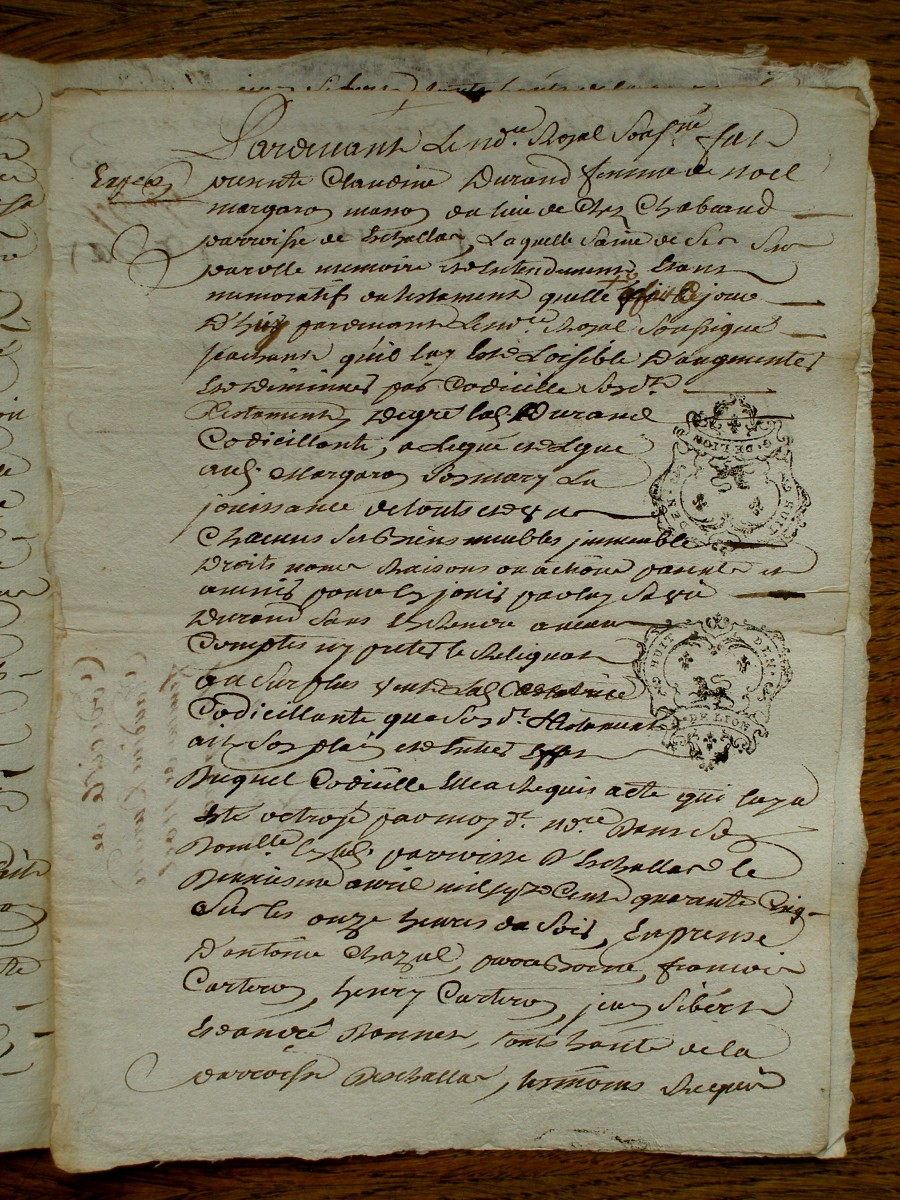 Pardevant Le no.re Royal Soussigné fut
Expedié
presente Claudine Durand femme de noel
margaron masson du lieu de Chez Chabaud
parroisse de Eschallas, Laquelle Saine de Ses Sens
parolle memoire et Entendement Estant
memoratifs du testament quelle a fait Ce jour
D'huy pardevant Le no.re Royal Soussigné
sçachant quil luy Est Loisible D'augmenter
Et diminuer par Codicille Sond.t
Testament, De gré lad. Durand
Codicillante, a Legué et Legue
aud. Margaron Son mary La
jouissance de touts et Un
Chacuns Ses Biens meubles immeubles
Droits noms Raisons ou actions presents et
avenir pour En jouir par luy Sa vie
Durant Sans En Rendre aucun
Compte ny preter le Reliquat
au Surplus Veut Lad.
Codicillante que Sond. testament
ait Son plein et Entier Effet
Duquel Codicille Elle a Requis acte qui luy a
Esté octroyé par moy d.t no.re Dans Son
Domicille Esd. parroisse D'Eschallas le
avril mil sept Cent quarante Cinq
Sur les onze heures du Soir, En presence
D'antoine Chazal, françois
Carteron, henry Carteron, jean Sibert
Et andré Bonnet, touts habitants de la
parroisse Deschallas, temoins Requis
G. DE LION
DEN
HUIT
HUIT DEN
G. DE LION